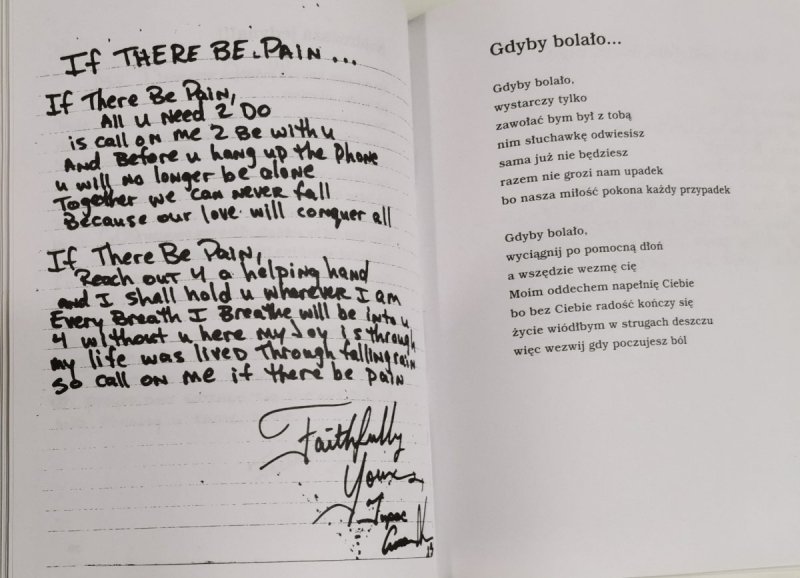 If THERE BE PAIN...
If There Be Pain,
All u Need 2 Do
is call on me 2 Be with u
And Before u hang up the Phone
u will no longer be alone
Together we can never fall
Because our love will conquer all
If There Be Pain,
Reach out 4 a helping hand
and I shall hold u wherever I am
Every Breath I Breathe will be into u
4 without u here my Joy is through
my life was lived Through falling rain
so call on me if there be pain
Faithfully
Yours
Tupac
Gdyby bolało...
Gdyby bolało,
wystarczy tylko
zawołać bym był z tobą
nim słuchawkę odwiesisz
sama już nie będziesz
razem nie grozi nam upadek
bo nasza miłość pokona każdy przypadek
Gdyby bolało,
wyciągnij po pomocną dłoń
a wszędzie wezmę cię
Moim oddechem napełnię Ciebie
bo bez Ciebie radość kończy się
życie wiódłbym w strugach deszczu
więc wezwij gdy poczujesz ból